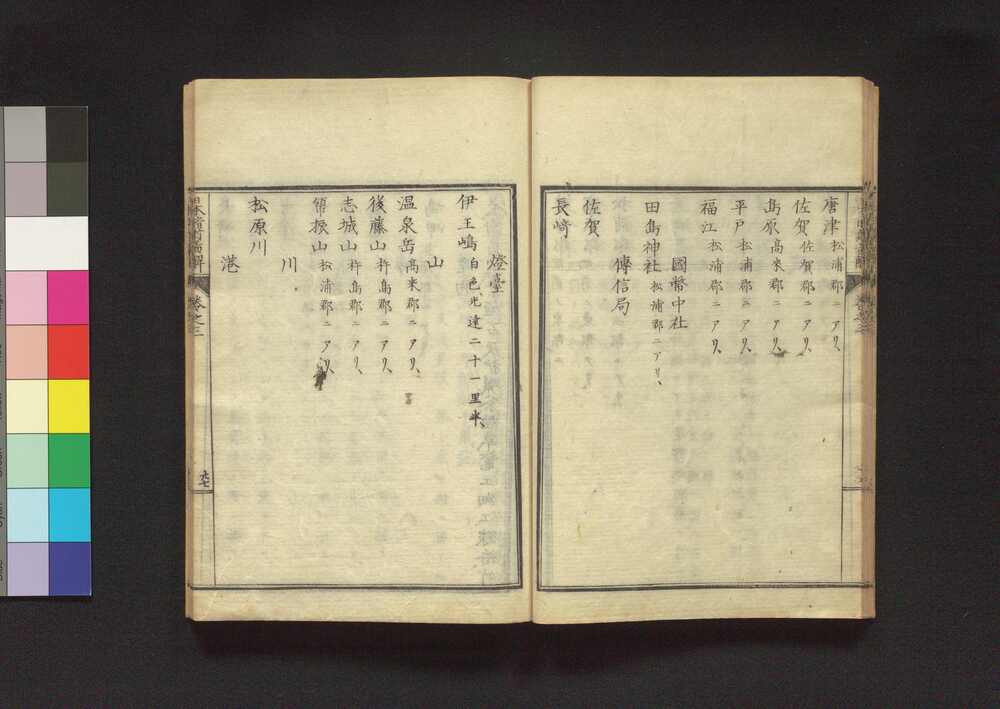 唐津 松浦郡ニアリ、
佐賀 佐賀郡ニアリ、
島原 高来郡ニアリ、
平戸 松浦郡ニアリ、
福江 松浦郡ニアリ、
國幣中社
田島神社 松浦郡ニアリ、
傳信局
佐賀
長崎
燈臺
伊王嶋 白色、光達二十一里半、
温泉岳 高来郡ニアリ、
山
後藤山 杵島郡ニアリ、
志城山 杵島郡ニアリ、
領振山 松浦郡ニアリ、
川
松原川
港
卷之三
九七